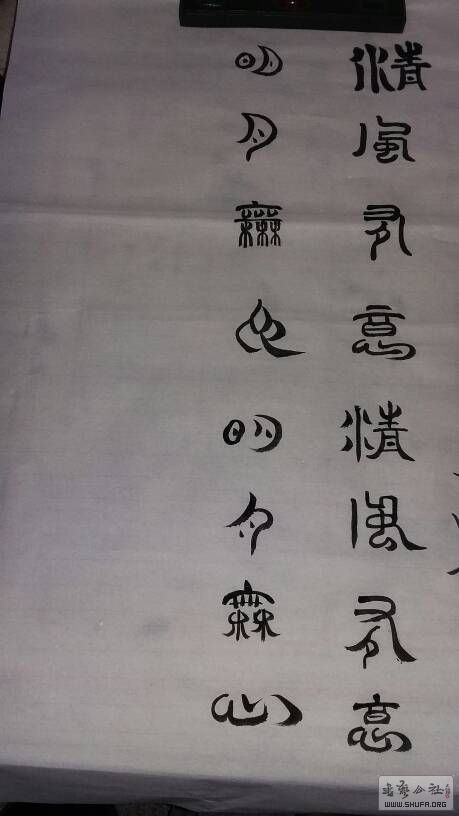 清風有意清風有意
明月無心明月無心
書藝公社
WWW.SHUFA.ORG